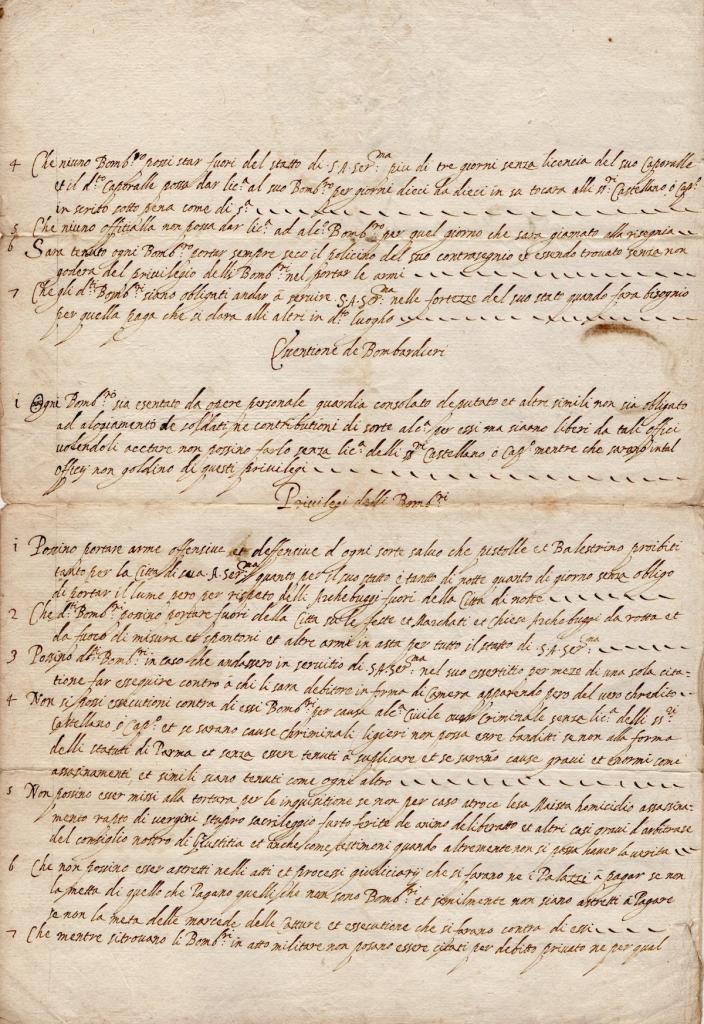 4 Che niuno Bomb.ro possi star fuori del statto di S.A.Ser.ma piu di tre giorni senza licencia del suo Caporalle
et il d.to Caporalle possa dar lic.a al suo Bomb.ro per giorni dieci da dieci in su tocara alli ss.ri Castellano ò Cap.o
in scritto sotto pena come di s.a
5 Che niuno officialle non possa dar lic.a ad alc.o Bomb.ro per quel giorno che sara giamato alla risegnia
6 Sara tenuto ogni Bomb.ro portar sempre seco il policino del suo contrasegnio et essendo trovato senza non
godera del privilegio delli Bomb.ri nel portar le armi
7 Che gli d.ti Bomb.ri siano obligati andar à servire S.A.Ser.ma nelle fortezze del suo stato quando fara bisognio
per quella paga che si dara alli altri in d.to luogho
Essentione de Bombardieri
1 Ogni Bomb.ro sia esentato da opere personale guardia consolato deputato et altre simili non sia obligato
ad alogiamento de soldati, ne contributioni di sorte alc.a per essi ma sianno liberi da tali offici
volendoli accetare non possino farlo senza lic.a delli ss.ri Castellano ò Cap.o mentre che sarano in tal
officij non goldino di questi privilegi
Privilegi delli Bomb.ri
1 Possino portare arme offensive et deffensive d ogni sorte salvo che pistolle et Balestrino proibiti
tanto per la Citta di sua A.Ser.ma quanto per il suo stato è tanto di notte quanto di giorno senza obligo
di portar il lume pero per rispeto delli Archebuggi fuori della Citta di notte
2 Che d.ti Bomb.ri possino portare fuori della Citta su le feste et Marchati et chiesa Archobuggi da rotta et
da fuoco di misura et spontoni et altre armi in asta per tutto il statto di S.A.Ser.ma
3 Possino d.ti Bomb.ri in caso che andassero in servitio di S.A.Ser.ma nel suo essertitio per mezo di una sola cita-
tione far esseguire contro à chi li sara debitore in forma di Camera apparendo pero del vero chredito
4 Non si possi essecutioni contra di essi Bomb.ri per causa alc.a Civile over Criminale senza lic.a delli ss.ri
Castellano ò Cap.o et se sarano cause chriminali ligieri non possa esere banditi se non alla forma
delli statuti di Parma et senza essere tenuti à suplicare et se sarano cause gravi et enormi come
assasinamenti et simili siano tenuti come ogni altro
5 Non possino esser missi alla tortura per le inquisitione se non per caso atroce lesa Maista homicidio assassina-
mento rapto di vergini stupro sacrileggio furto ferite de animo deliberatto et altri casi gravi d'arbitrase
del consiglio nostro di Giustitia et anche come testimoni quando altremente non si possa haver la verita
6 Che non possino esser astretti nelli atti et processi giudiciarij che si farano ne i Palazzi à pagar se non
la metta di quello che Pagano quelli che non sono Bomb.ri et similmente non siano astretti à Pagare
se non la meta delle marcede delle Catture et essecutione che si farano contra di essi
7 Che mentre si trovano li Bomb.ri in atto militare non posano essere citati per debitto privato ne per qual